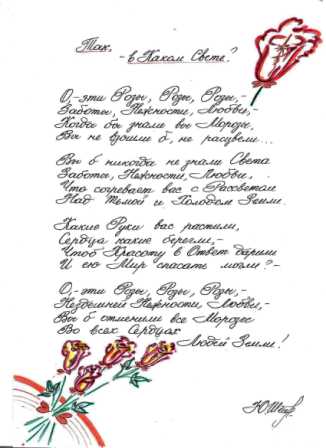 Так,
- в Каком Свете?
О,- эти Розы, Розы, Розы,-
Заботы, Нежности, Любви,-
Когда бы знали вы Морозы,
Вы не взошли б, не расцвели...
Вы б никогда не знали Света
Заботы, Нежности, Любви,
Что согревает вас с Рассветом
Над Тьмой и Холодом Земли.
Какие Руки вас растили,
Сердца какие берегли,-
Чтоб Красоту в Ответ дарили
И ею Мир спасать могли?-
О,- эти Розы, Розы, Розы,-
Нездешней Нежности, Любви,-
Вы б отменили все Морозы
Во всех Сердцах
Людей Земли!